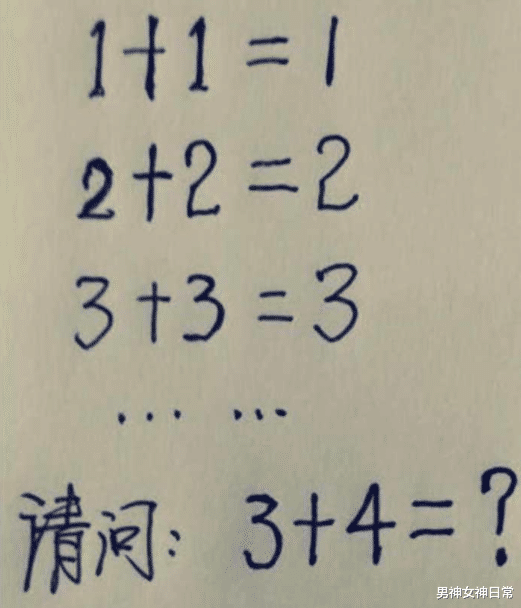 1+1=1
2+2=2
3+3=3
... ...
请问: 3+4=?
男神女神日常